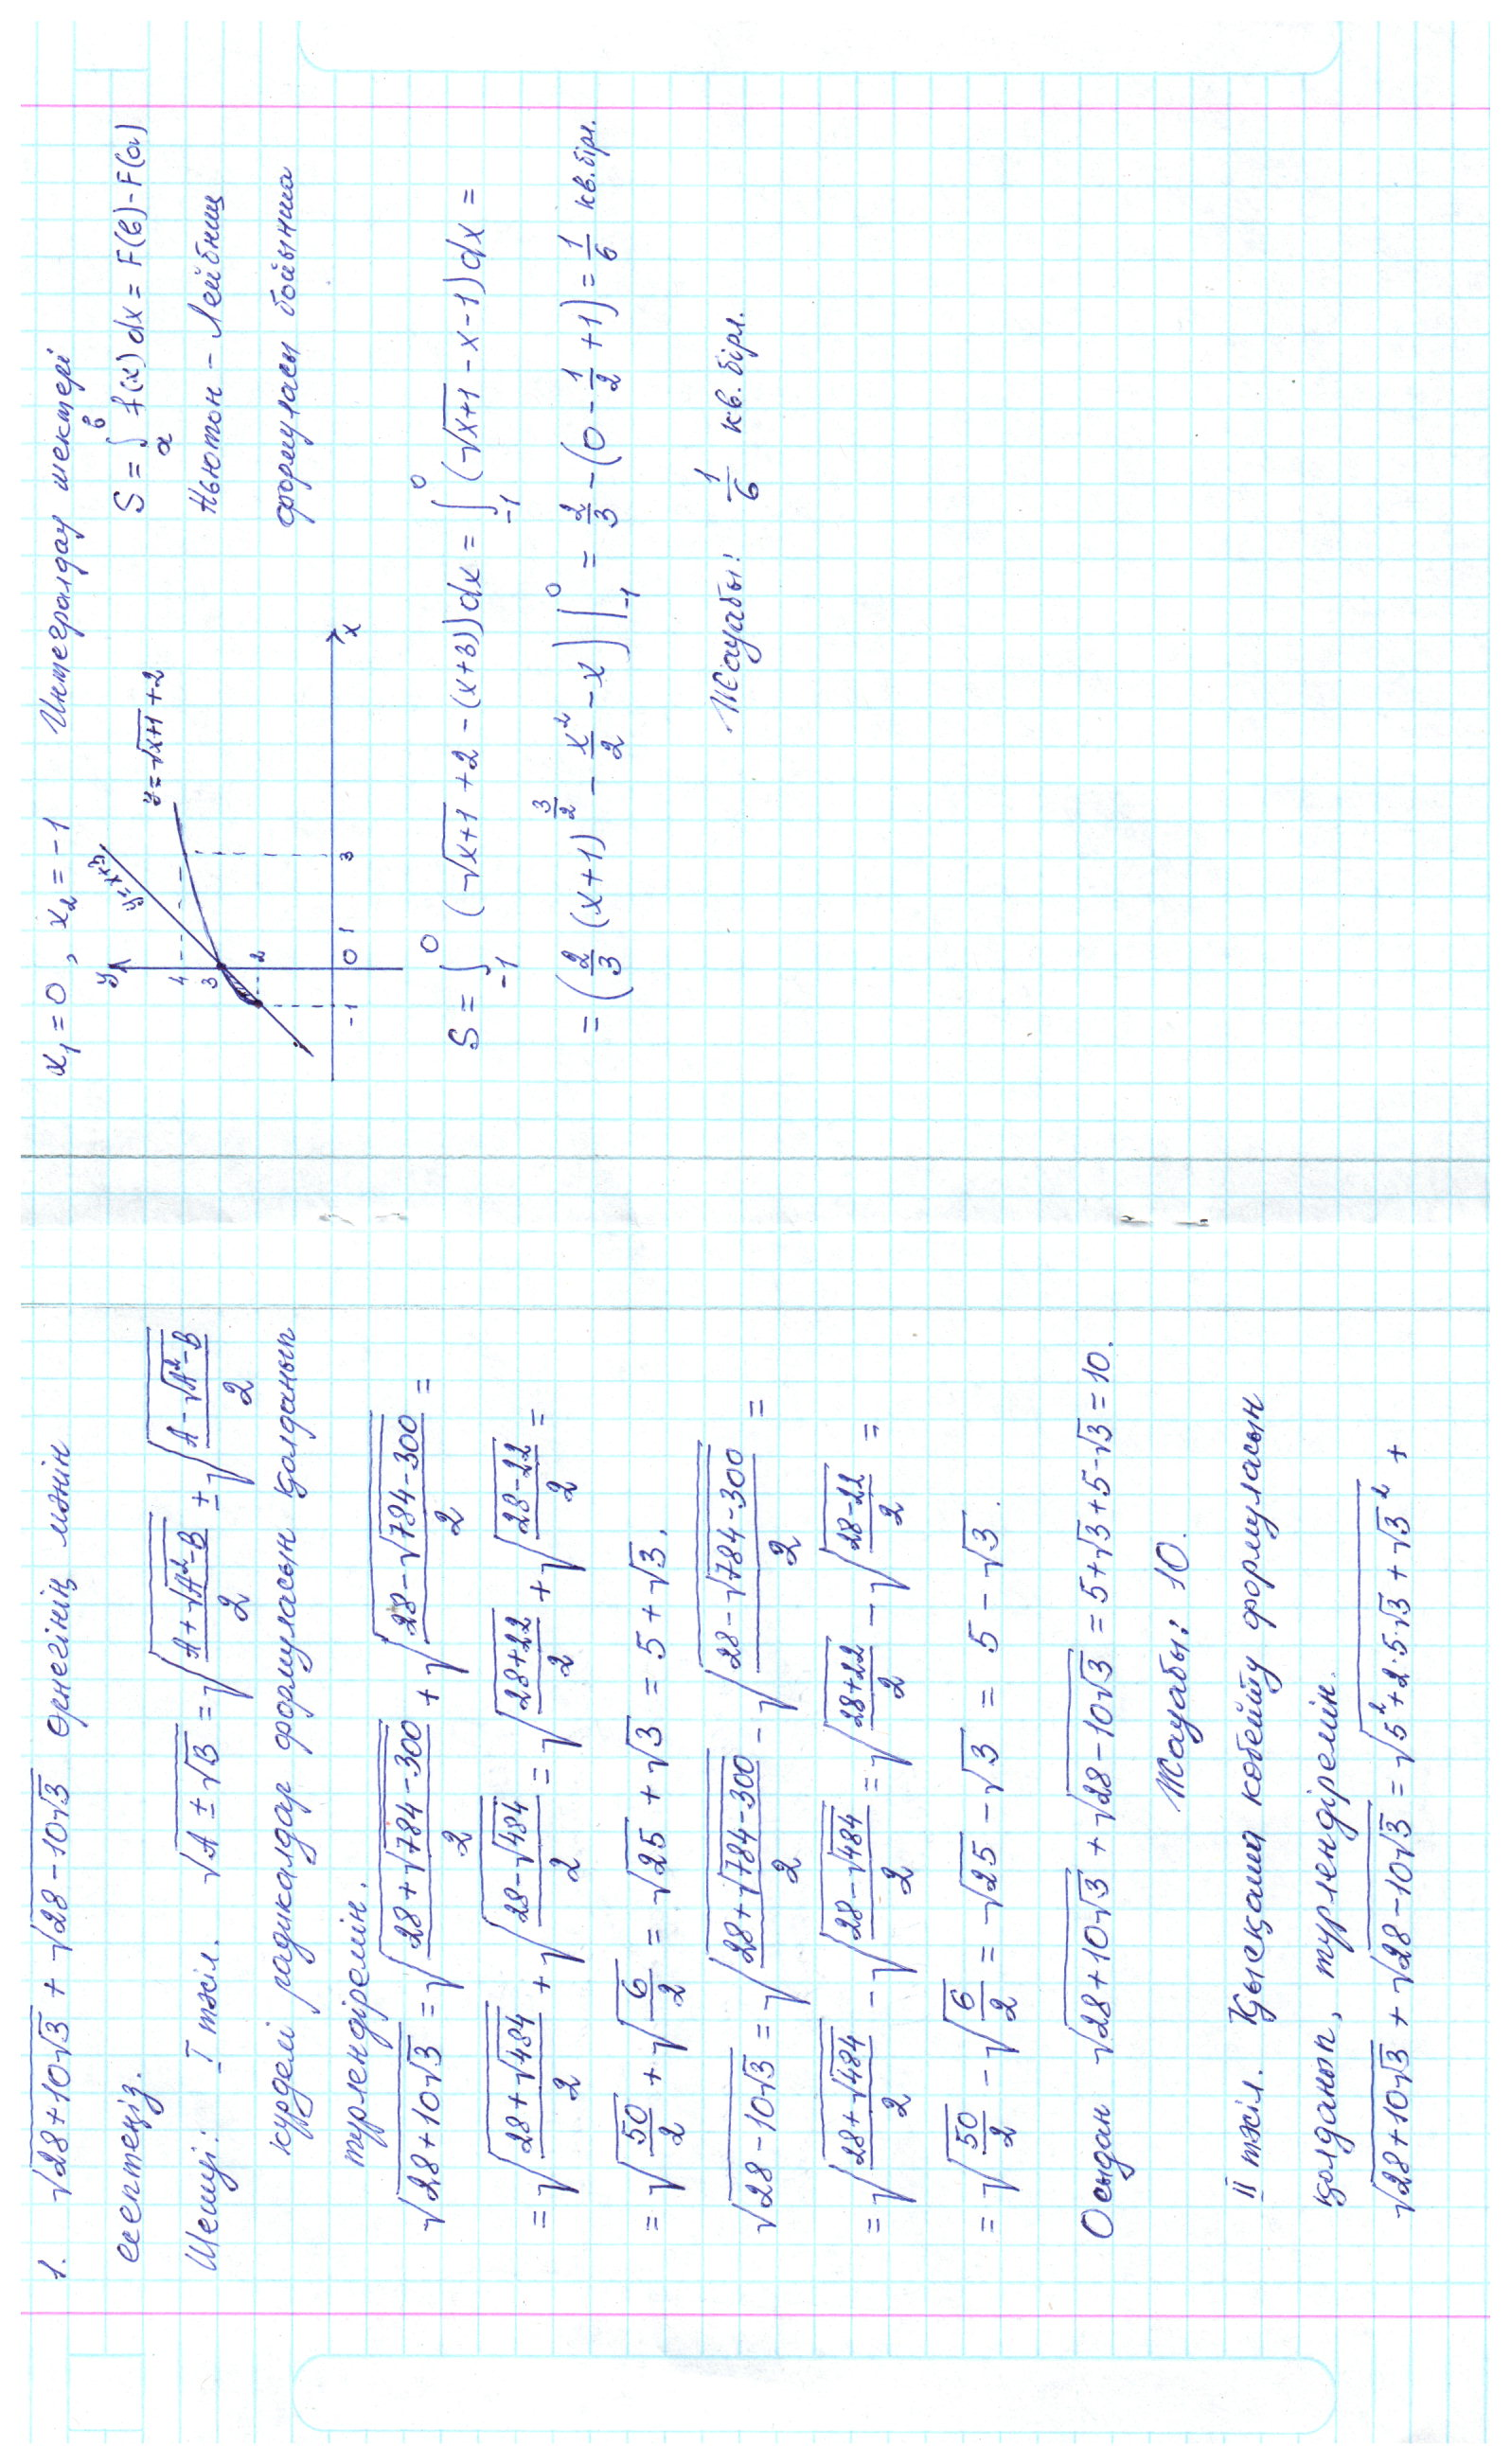 1. √(28+10√3) + √(28−10√3) өрнегінің мәнін
есептеңіз.
Шешуі: I тәсіл. √(A±√B) = √((A+√(A²−B))/2) ± √((A−√(A²−B))/2)
күрделі радикалдар формуласын қолданып
түрлендіремін.
√(28+10√3) = √((28+√(784−300))/2) + √((28−√(784−300))/2) =
= √((28+√484)/2) + √((28−√484)/2) = √((28+22)/2) + √((28−22)/2) =
= √(50/2) + √(6/2) = √25 + √3 = 5+√3.
√(28−10√3) = √((28+√(784−300))/2) − √((28−√(784−300))/2) =
= √((28+√484)/2) − √((28−√484)/2) = √((28+22)/2) − √((28−22)/2) =
= √(50/2) − √(6/2) = √25 − √3 = 5 − √3.
Осыдан √(28+10√3) + √(28−10√3) = 5+√3+5−√3 = 10.
Жауабы: 10.
II тәсіл. Қысқаша көбейту формуласын
қолданып, түрлендіремін.
√(28+10√3) + √(28−10√3) = √(5²+2·5·√3+√3²) +
x₁=0, x₂=−1 Интегралдау шектері
S = ∫ₐᵇ f(x)dx = F(b)−F(a)
Ньютон – Лейбниц
формуласы бойынша
y
y=x+3
y=√(x+1)+2
4
3
2
−1 0 1 3 x
S = ∫₋₁⁰ (√(x+1)+2−(x+3))dx = ∫₋₁⁰ (√(x+1)−x−1)dx =
= (2/3 (x+1)^(3/2) − x²/2 − x)|₋₁⁰ = 2/3 − (0 − 1/2 + 1) = 1/6 кв. бірл.
Жауабы: 1/6 кв. бірл.